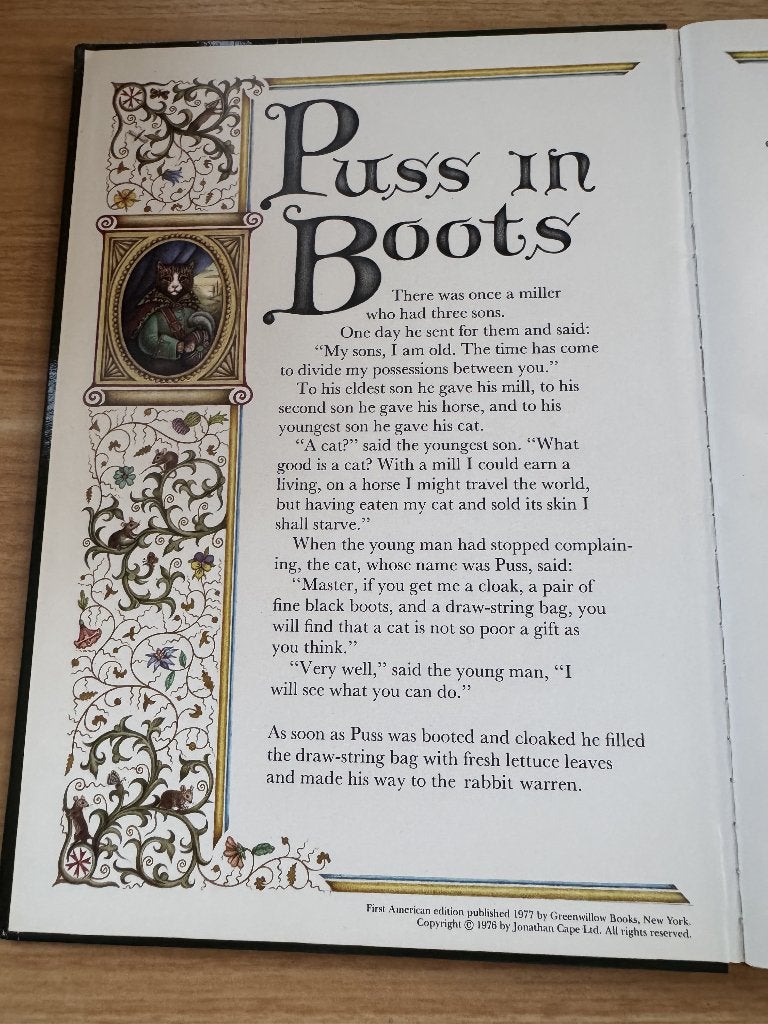 Puss in
Boots
There was once a miller
who had three sons.
One day he sent for them and said:
“My sons, I am old. The time has come
to divide my possessions between you.”
To his eldest son he gave his mill, to his
second son he gave his horse, and to his
youngest son he gave his cat.
“A cat?” said the youngest son. “What
good is a cat? With a mill I could earn a
living, on a horse I might travel the world,
but having eaten my cat and sold its skin I
shall starve.”
When the young man had stopped complain-
ing, the cat, whose name was Puss, said:
“Master, if you get me a cloak, a pair of
fine black boots, and a draw-string bag, you
will find that a cat is not so poor a gift as
you think.”
“Very well,” said the young man, “I
will see what you can do.”
As soon as Puss was booted and cloaked he filled
the draw-string bag with fresh lettuce leaves
and made his way to the rabbit warren.
First American edition published 1977 by Greenwillow Books, New York.
Copyright © 1976 by Jonathan Cape Ltd. All rights reserved.